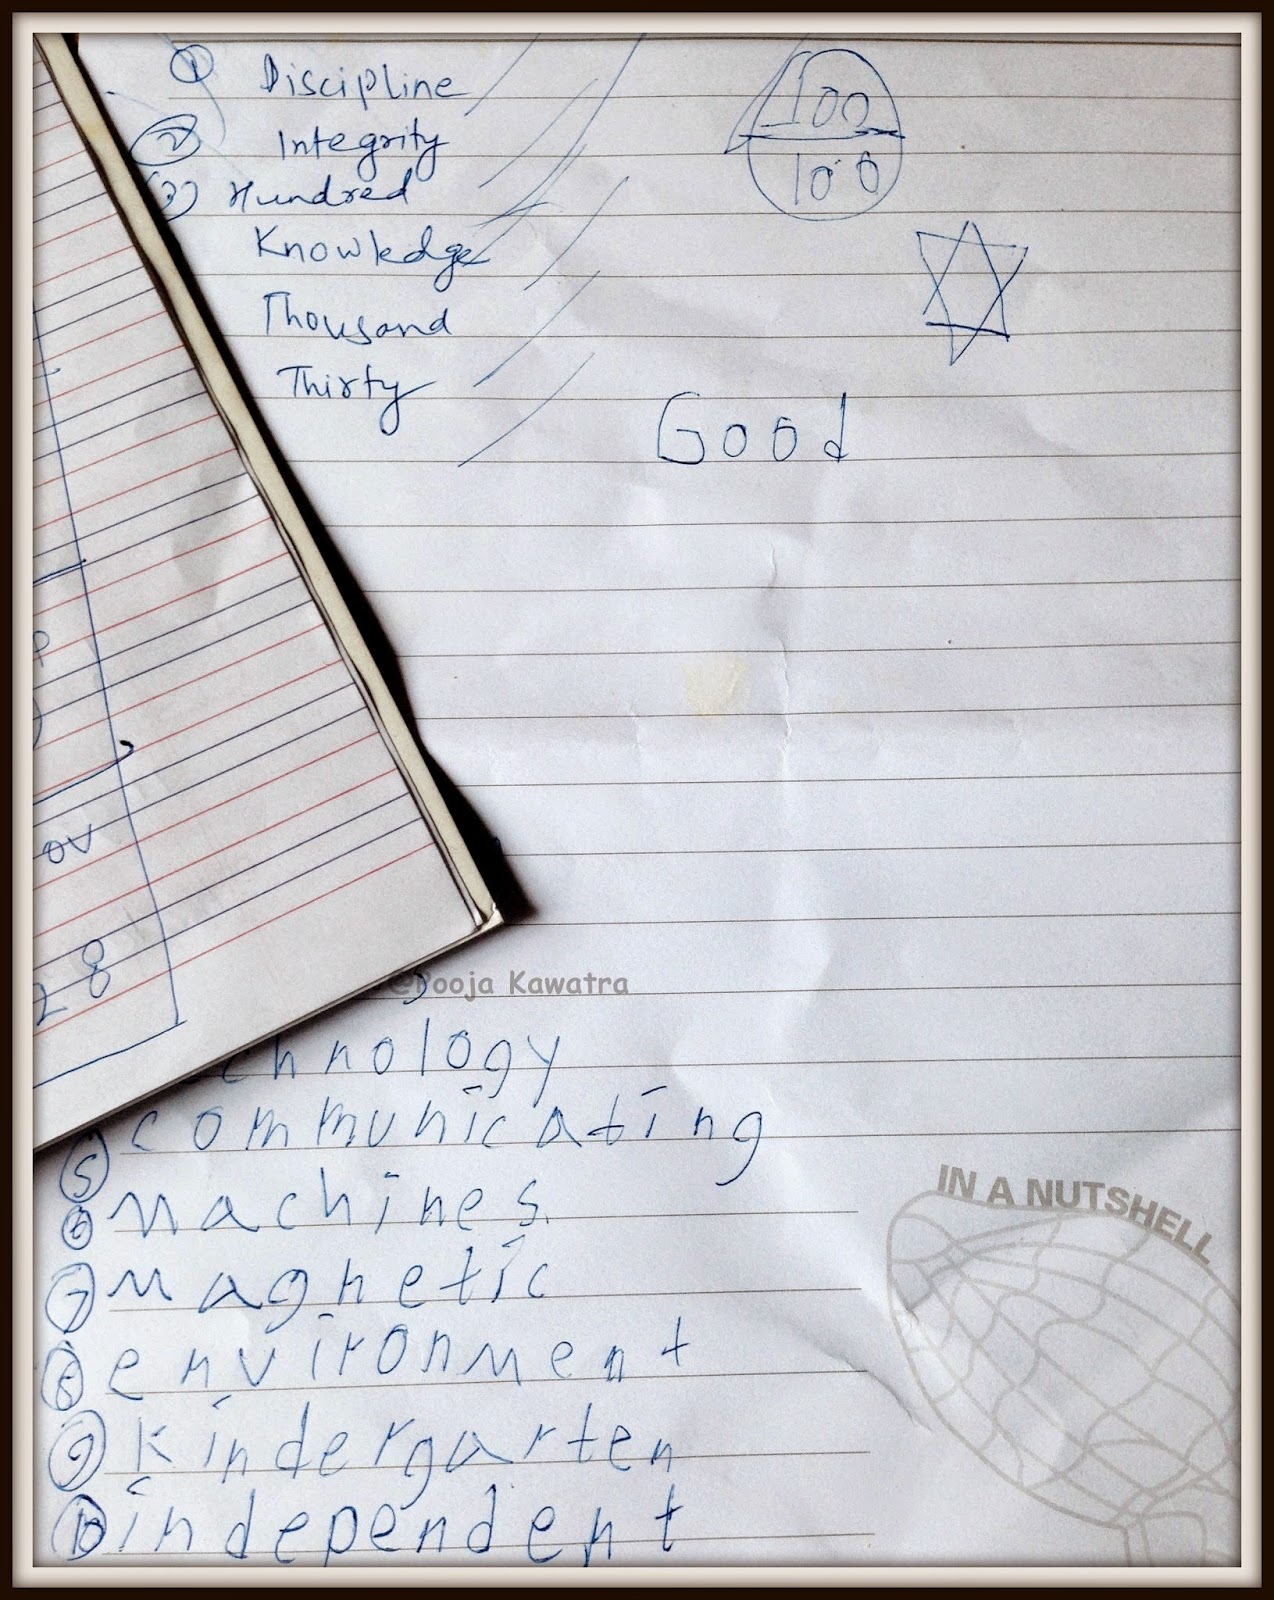 ① Discipline
② Integrity
(3) Hundred
Knowledge
Thousand
Thirty
100
100
Good
ov
28
@Pooja Kawatra
chnology
⑤ communicating
⑥ machines
⑦ magnetic
⑧ environment
⑨ kindergarten
⑩ independent
IN A NUTSHELL